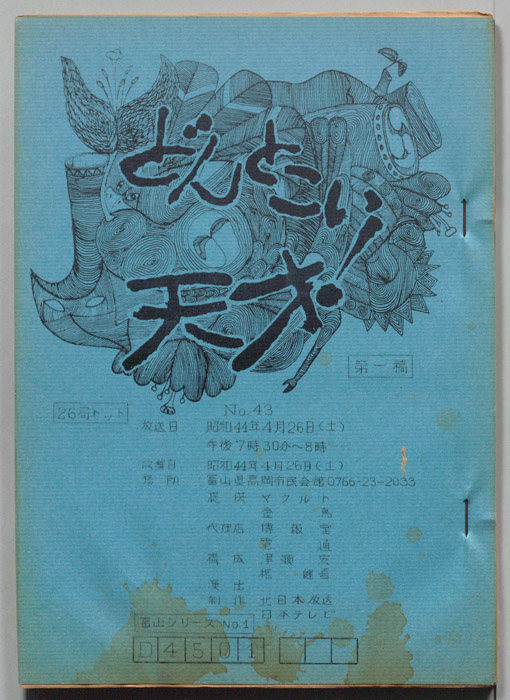 どんとこい!
天才
第一稿
26局ネット
No.43
放送日 昭和44年4月26日(土)
午後7時30分〜8時
収録日 昭和44年4月26日(土)
場所 富山県高岡市民会館0766-23-2033
提供 ヤクルト
代理店 博報堂
電通
構成
制作 北日本放送
日本テレビ
富山シリーズ No.1
D4501